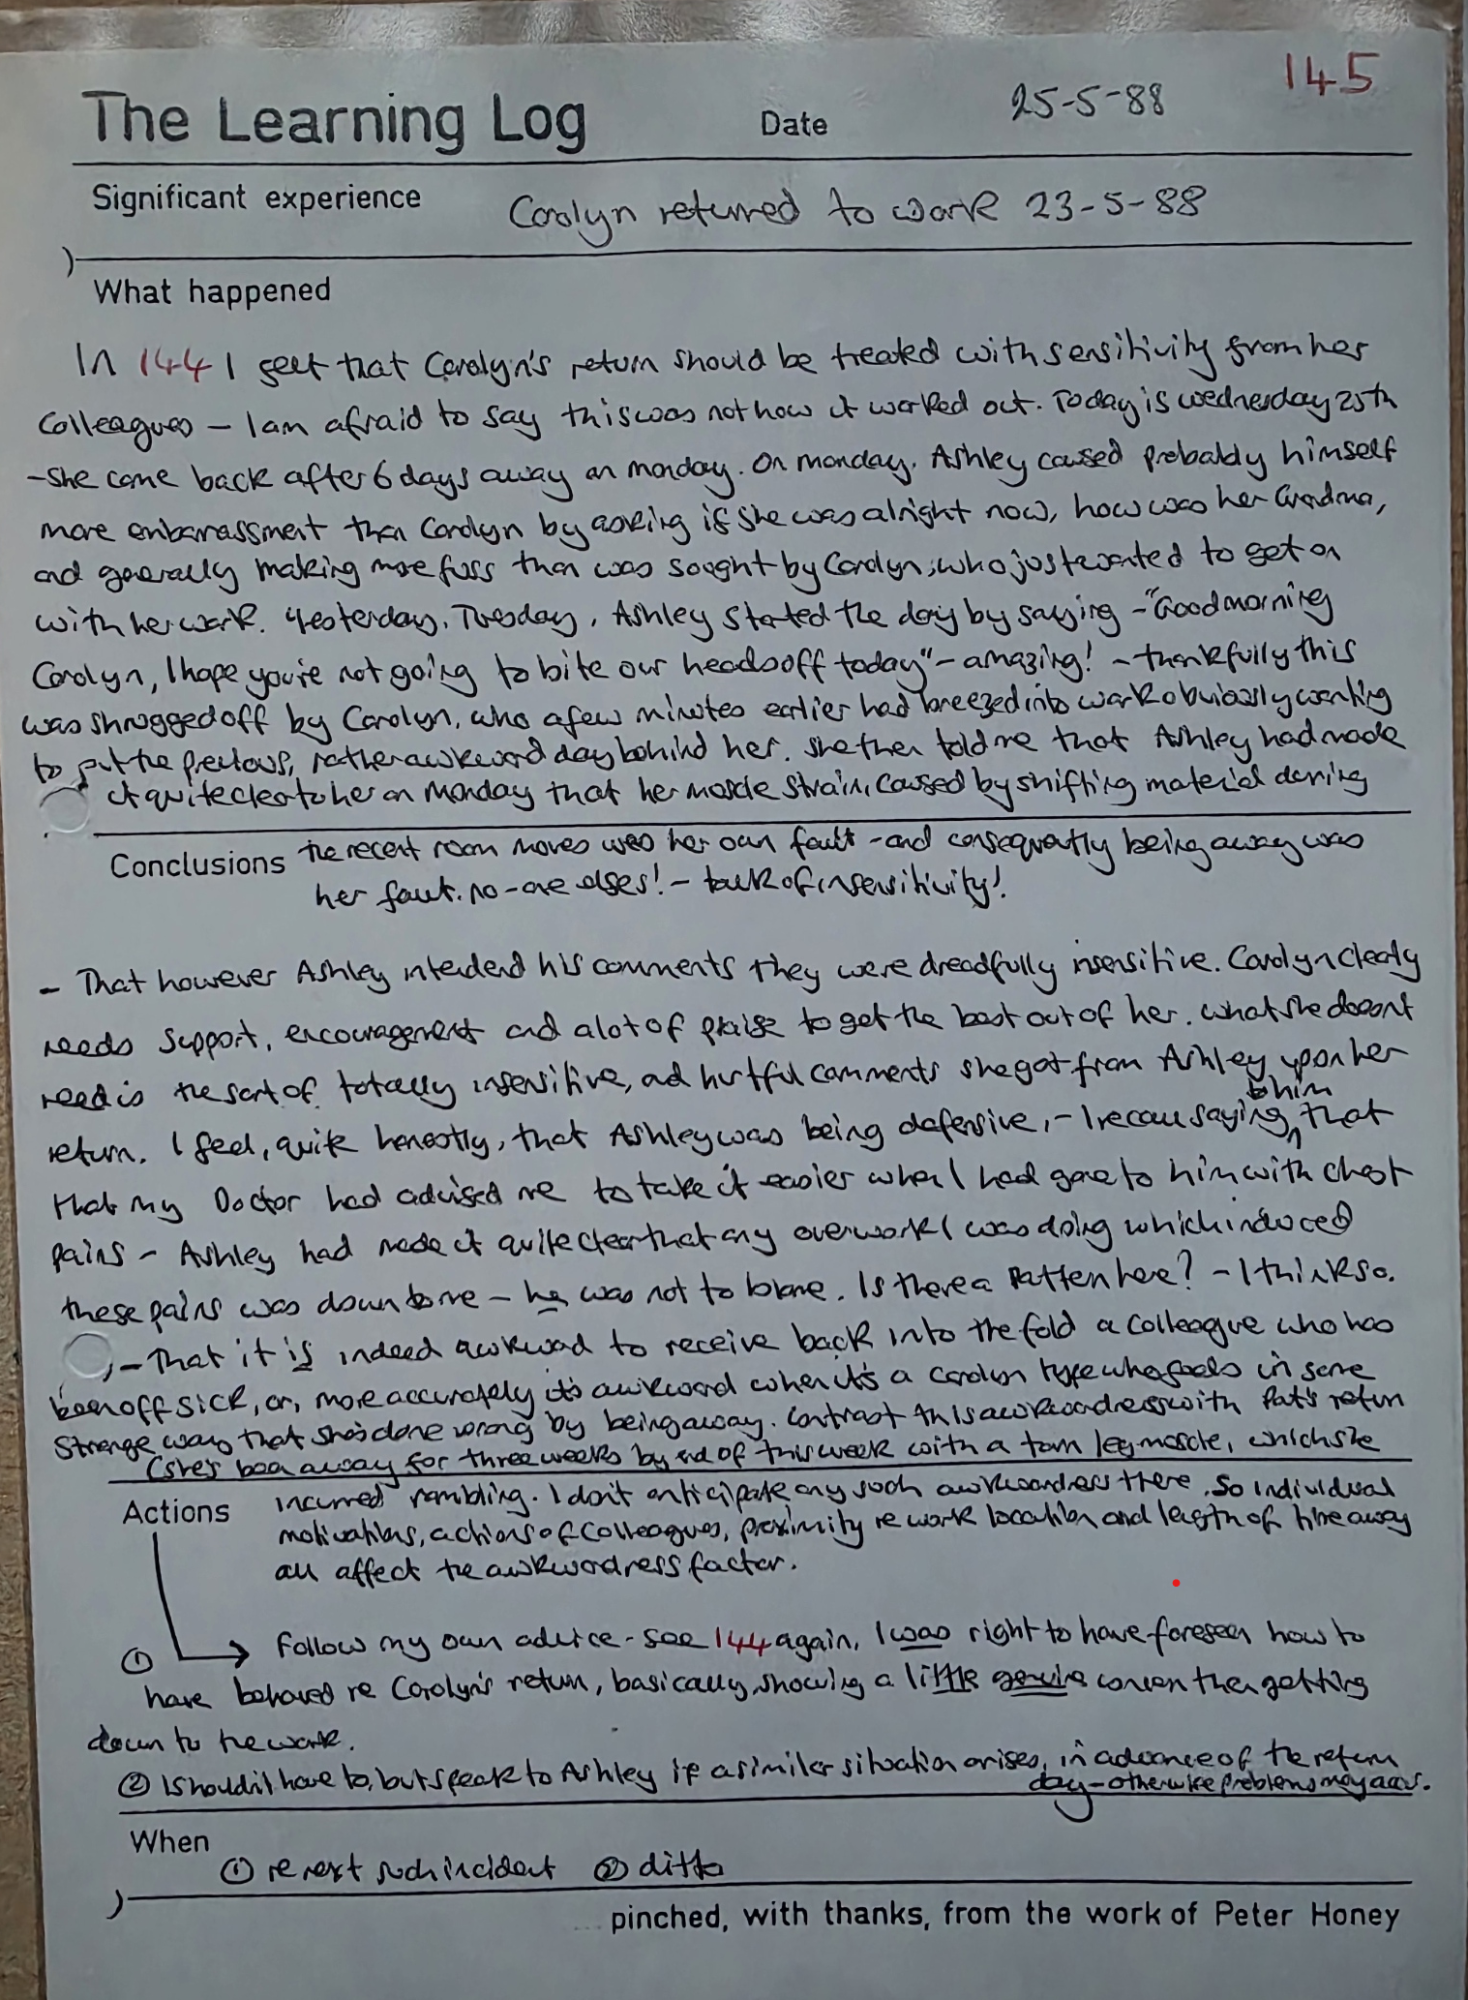 145
The Learning Log Date 25-5-88
Significant experience Carolyn returned to work 23-5-88
What happened
In 144 I felt that Carolyn's return should be treated with sensitivity from her
colleagues - I am afraid to say this was not how it worked out. Today is wednesday 25th
- she came back after 6 days away on monday. On monday, Ashley caused probably himself
more embarrassment than Carolyn by asking if she was alright now, how was her Grandma,
and generally making more fuss than was sought by Carolyn, who just wanted to get on
with her work. Yesterday, Tuesday, Ashley started the day by saying - "Good morning
Carolyn, I hope you're not going to bite our heads off today" - amazing! - thankfully this
was shrugged off by Carolyn, who a few minutes earlier had breezed into work obviously wanting
to put the previous, rather awkward day behind her. She then told me that Ashley had made
it quite clear to her on Monday that her muscle strain, caused by shifting material during
Conclusions the recent room moves was her own fault - and consequently being away was
her fault. no-one elses! - talk of insensitivity!
- That however Ashley intended his comments they were dreadfully insensitive. Carolyn clearly
needs support, encouragement and a lot of praise to get the best out of her. what she doesnt
need is the sort of totally insensitive, and hurtful comments she got from Ashley upon her
return. I feel, quite honestly, that Ashley was being defensive, - I recall saying to him that
that my Doctor had advised me to take it easier when I had gone to him with chest
pains - Ashley had made it quite clear that any overwork I was doing which induced
these pains was down to me - he was not to blame. Is there a Pattern here? - I think so.
- That it is indeed awkward to receive back into the fold a colleague who has
been off sick, or, more accurately it's awkward when it's a Carolyn type who feels in some
strange way that she's done wrong by being away. Contrast this awkwardness with Pat's return
(she's been away for three weeks by end of this week with a torn leg muscle, which she
Actions incurred rambling. I don't anticipate any such awkwardness there. So individual
motivations, actions of colleagues, proximity re work location and length of time away
all affect the awkwardness factor.
① Follow my own advice - see 144 again, I was right to have foreseen how to
have behaved re Carolyn's return, basically, showing a little genuine concern then getting
down to the work.
② I shouldn't have to, but speak to Ashley if a similar situation arises, in advance of the return
day - otherwise problems may occur.
When
① re next such incident ② ditto
pinched, with thanks, from the work of Peter Honey